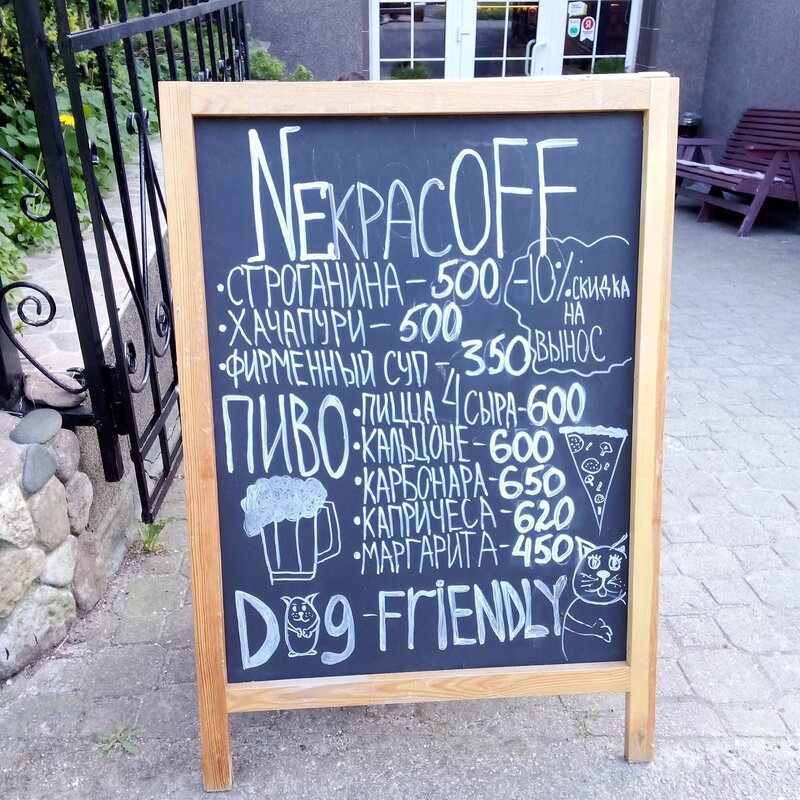 NEКРАСOFF
•СТРОГАНИНА – 500
•ХАЧАПУРИ – 500
•ФИРМЕННЫЙ СУП – 350
-10% СКИДКА
НА
ВЫНОС
ПИВО
•ПИЦЦА 4 СЫРА-600
•КАЛЬЦОНЕ-600
•КАРБОНАРА-650
•КАПРИЧЕСА-620
•МАРГАРИТА-450Р
Dog-FRiENDLY